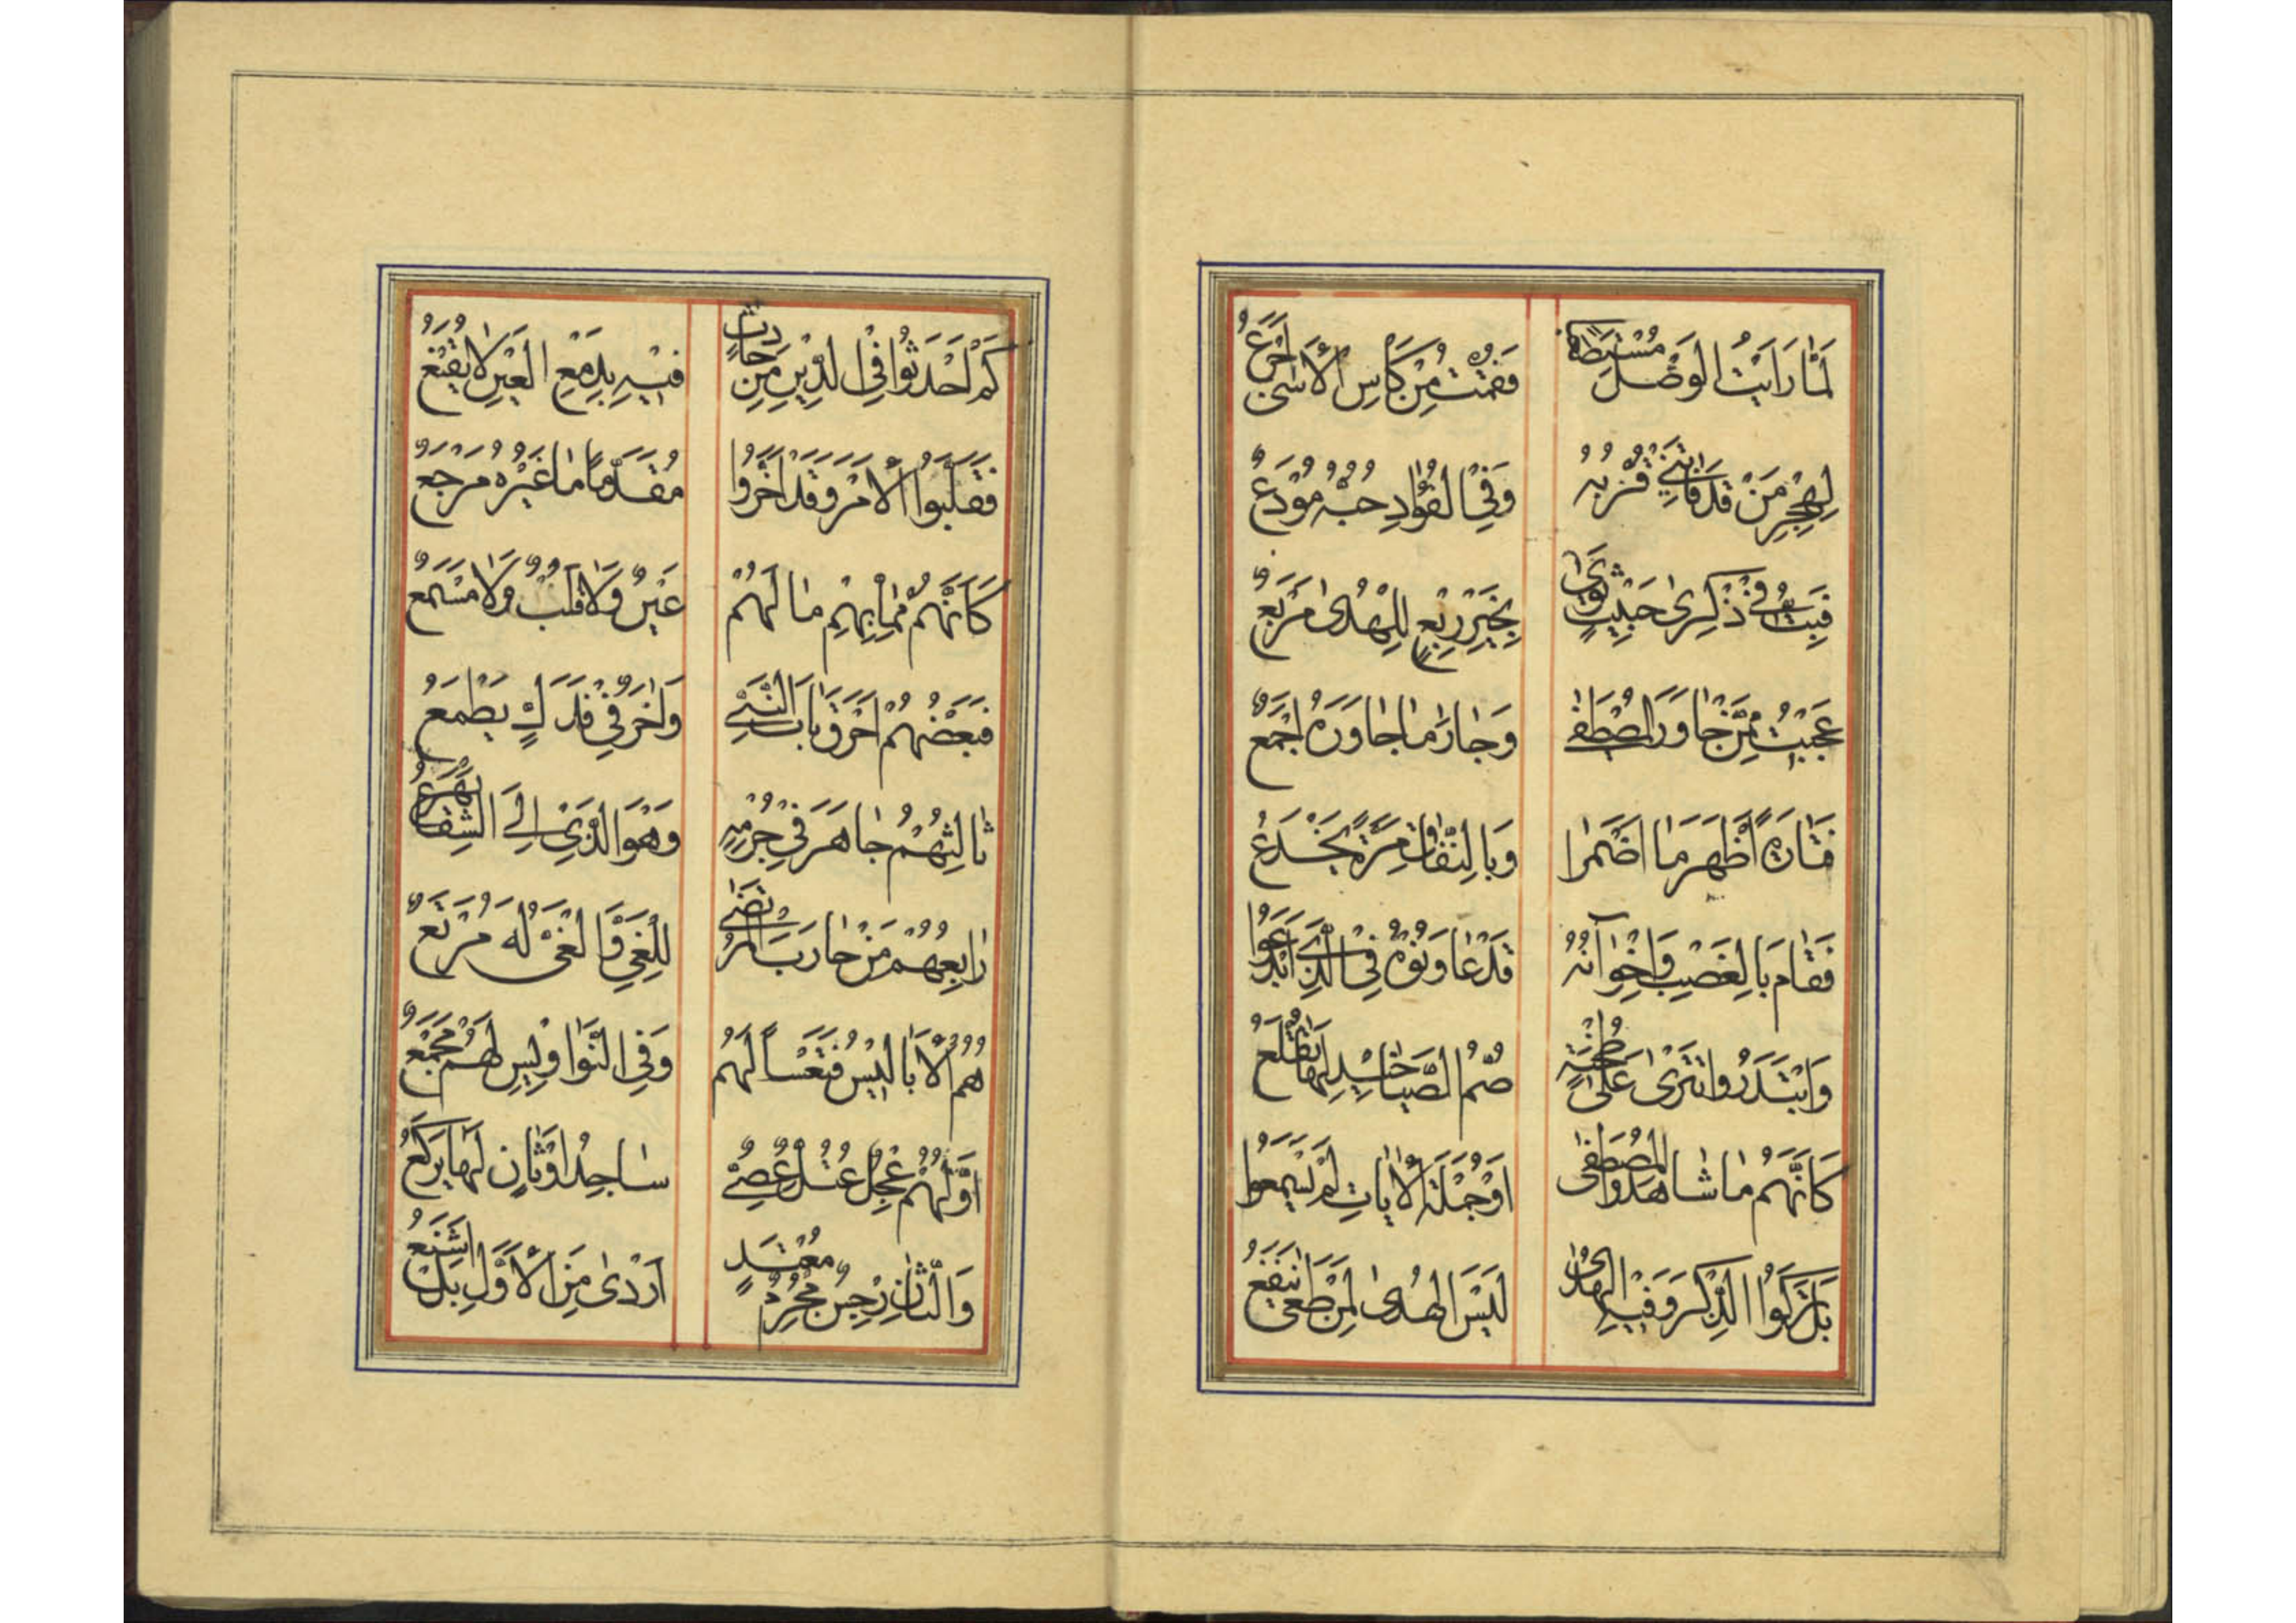 لَمَّا رَاَيْتُ الوَصْلَ فَقُمْتُ مِنْ كَأسِ الْأَسٰى اَجْرَعُ
لِهِجْرِ مَنْ قَدْ فَاتَنِي قُرْبُهُ وَفِي الفُؤٰادِ حُبُّهُ مُوْدَعٌ
فَبِتُّ فِي ذِكْرىٰ حَبِيْبٍ ثَوىٰ بِخَيْرِ رَبْعٍ لِلْهُدىٰ مَرْبَعٌ
عَجِبْتُ مِمَّنْ جٰاوَرَ الْمُصْطَفٰى وَجٰارَ مٰا جٰاوَرَهُ اَجْمَعُ
فَتٰارَةً اَظْهَرَ مٰا اَضْمَرا وَبِالنِّفٰاقِ مَرَّةً يَخْدَعُ
فَقٰامَ بِالغَصْبِ وَاِخْوٰانُهُ قَدْ عٰاوَنُوْهُ فِي الَّذِي اَبْدَعُوا
وَابْتَدَرُوا تَتْرىٰ عَلىٰ صُمُّ
كَاَنَّهُمْ مٰا شٰاهَدُوا المُصْطَفٰى اَوْ جُمْلَةَ الْاٰيٰاتِ لَمْ يَسْمَعُوا
بَلْ تَرَكُوا الذِّكْرَ وَفِيْهِ الهُدىٰ لَيْسَ الهُدىٰ لِمَنْ طَغىٰ يَنْفَعُ
كَمْ اَحْدَثُوا فِي الدِّيْنِ مِنْ حٰادِثٍ فِيْهِ بِدَمْعِ العَيْنِ لٰا يُقْنَعُ
فَقَلَّبُوا الْأَمْرَ وَقَدْ اَخَّرُوا مُقَدَّمًا مٰا غَيْرُهُ مَرْجَعٌ
كَاَنَّهُمْ مِمّٰا بِهِمْ مٰا لَهُمْ عَيْنٌ وَلٰا قَلْبٌ وَلٰا مَسْمَعٌ
فَبَعْضُهُمْ اَحْرَقَ بٰابَ النَّبِي وَاٰخَرٌ فِي فَدَكٍ يَطْمَعُ
ثٰالِثُهُمْ جٰاهَرَ فِي جُرْمِهِ وَهُوَ الَّذِي اِلَى الشِّقٰا يُهْرَعُ
رٰابِعُهُمْ مَنْ حٰارَبَ المُرْتَضٰى لِلْغَيِّ وَالْغَيُّ لَهُ مَرْتَعٌ
هُمُ الْأَبٰالِيْسُ فَتَعْسًا لَهُمْ وَفِي النَّوٰا وَلَيْسَ لَهُمْ مَجْمَعٌ
اَوَّلُهُمْ عِجْلٌ عُتُلٌّ سٰاجِدُ اَوْثٰانٍ لَهٰا يَرْكَعُ
وَالثّٰانِ رِجْسٌ مُجْرِمٌ مُعْتَدٍ اَرْدىٰ مِنَ الْأَوَّلِ بَلْ اَشْنَعُ